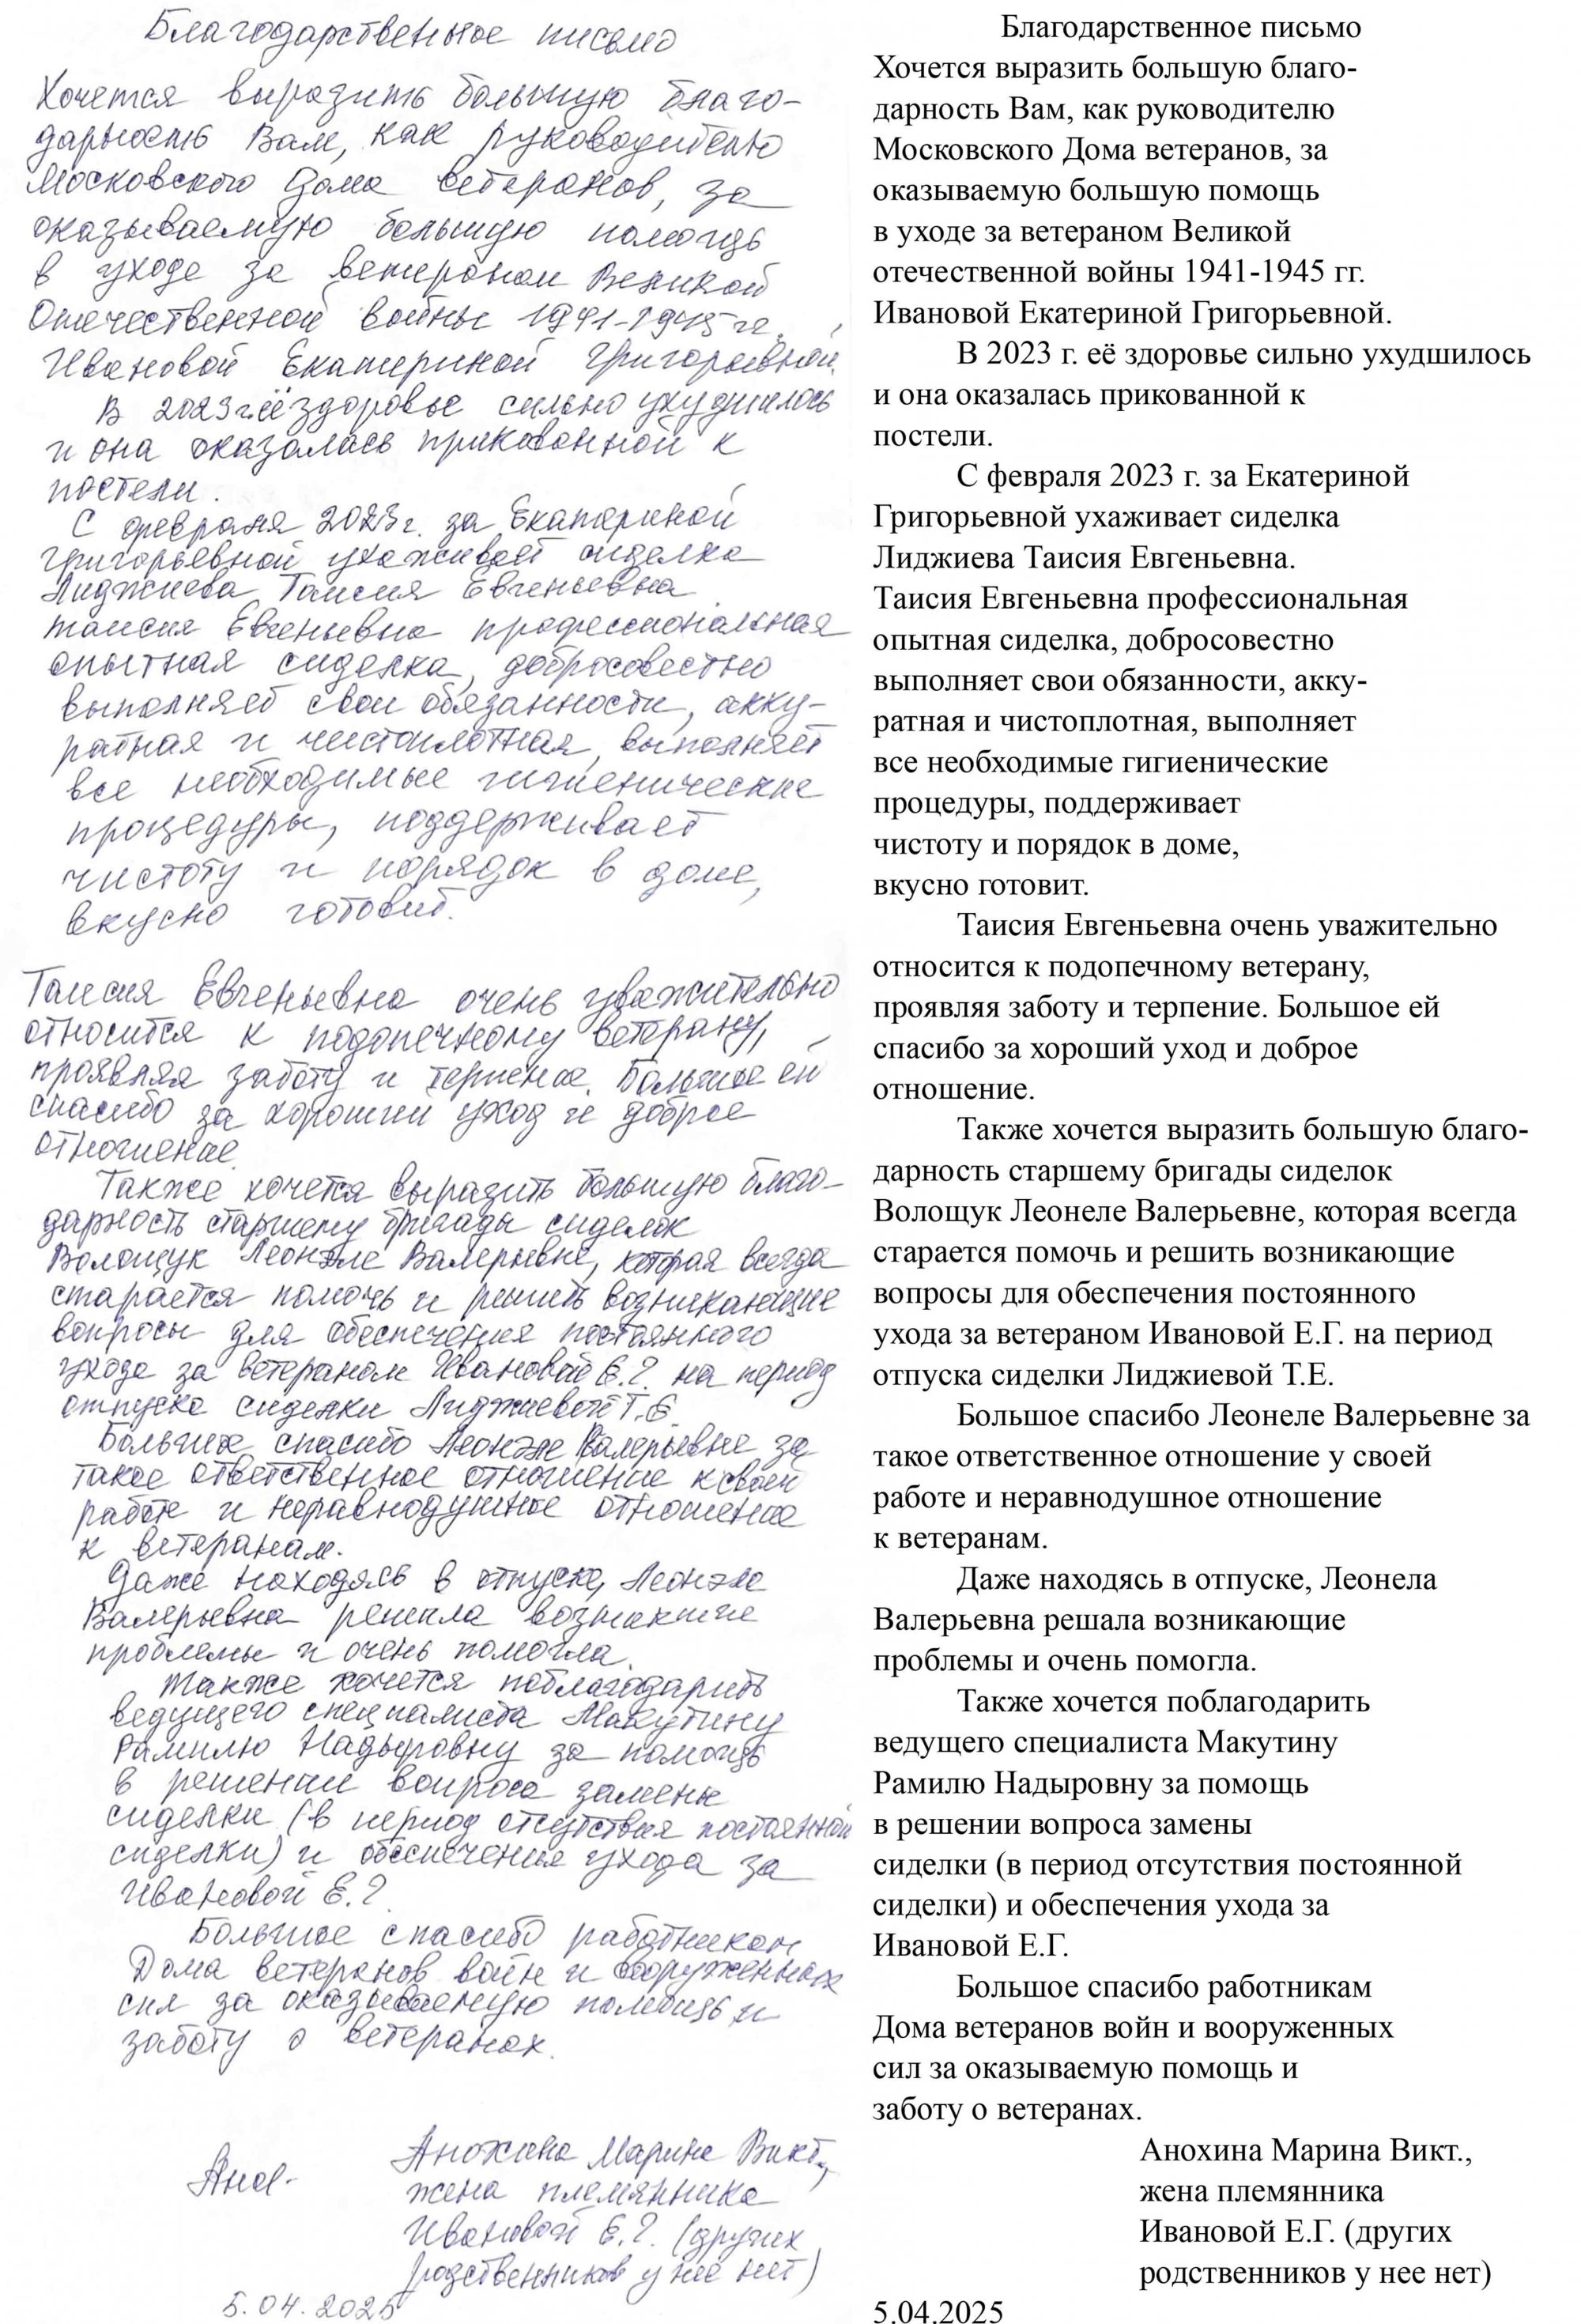 Благодарственное письмо
Хочется выразить большую благо-
дарность Вам, как руководителю
Московского Дома ветеранов, за
оказываемую большую помощь
в уходе за ветераном Великой
Отечественной войны 1941-1945 гг.
Ивановой Екатериной Григорьевной.
В 2023 г. её здоровье сильно ухудшилось
и она оказалась прикованной к
постели.
С февраля 2023 г. за Екатериной
Григорьевной ухаживает сиделка
Лиджиева Таисия Евгеньевна.
Таисия Евгеньевна профессиональная
опытная сиделка, добросовестно
выполняет свои обязанности, акку-
ратная и чистоплотная, выполняет
все необходимые гигиенические
процедуры, поддерживает
чистоту и порядок в доме,
вкусно готовит.
Таисия Евгеньевна очень уважительно
относится к подопечному ветерану,
проявляя заботу и терпение. Большое ей
спасибо за хороший уход и доброе
отношение.
Также хочется выразить большую благо-
дарность старшему бригады сиделок
Волощук Леонэле Валерьевне, которая всегда
старается помочь и решить возникающие
вопросы для обеспечения постоянного
ухода за ветераном Ивановой Е.Г. на период
отпуска сиделки Лиджиевой Т.Е.
Большое спасибо Леонэле Валерьевне за
такое ответственное отношение к своей
работе и неравнодушное отношение
к ветеранам.
Даже находясь в отпуске, Леонэла
Валерьевна решила возникшие
проблемы и очень помогла.
Также хочется поблагодарить
ведущего специалиста Макутину
Рамилю Надыровну за помощь
в решении вопроса замены
сиделки (в период отсутствия постоянной
сиделки) и обеспечения ухода за
Ивановой Е.Г.
Большое спасибо работникам
Дома ветеранов войн и вооруженных
сил за оказываемую помощь и
заботу о ветеранах.
Анохина Марина Викт.,
жена племянника
Ивановой Е.Г. (других
родственников у нее нет)
5.04.2025
Благодарственное письмо
Хочется выразить большую благо-
дарность Вам, как руководителю
Московского Дома ветеранов, за
оказываемую большую помощь
в уходе за ветераном Великой
отечественной войны 1941-1945 гг.
Ивановой Екатериной Григорьевной.
В 2023 г. её здоровье сильно ухудшилось
и она оказалась прикованной к
постели.
С февраля 2023 г. за Екатериной
Григорьевной ухаживает сиделка
Лиджиева Таисия Евгеньевна.
Таисия Евгеньевна профессиональная
опытная сиделка, добросовестно
выполняет свои обязанности, акку-
ратная и чистоплотная, выполняет
все необходимые гигиенические
процедуры, поддерживает
чистоту и порядок в доме,
вкусно готовит.
Таисия Евгеньевна очень уважительно
относится к подопечному ветерану,
проявляя заботу и терпение. Большое ей
спасибо за хороший уход и доброе
отношение.
Также хочется выразить большую благо-
дарность старшему бригады сиделок
Волощук Леонеле Валерьевне, которая всегда
старается помочь и решить возникающие
вопросы для обеспечения постоянного
ухода за ветераном Ивановой Е.Г. на период
отпуска сиделки Лиджиевой Т.Е.
Большое спасибо Леонеле Валерьевне за
такое ответственное отношение у своей
работе и неравнодушное отношение
к ветеранам.
Даже находясь в отпуске, Леонела
Валерьевна решала возникающие
проблемы и очень помогла.
Также хочется поблагодарить
ведущего специалиста Макутину
Рамилю Надыровну за помощь
в решении вопроса замены
сиделки (в период отсутствия постоянной
сиделки) и обеспечения ухода за
Ивановой Е.Г.
Большое спасибо работникам
Дома ветеранов войн и вооруженных
сил за оказываемую помощь и
заботу о ветеранах.
Анохина Марина Викт.,
жена племянника
Ивановой Е.Г. (других
родственников у нее нет)
5.04.2025